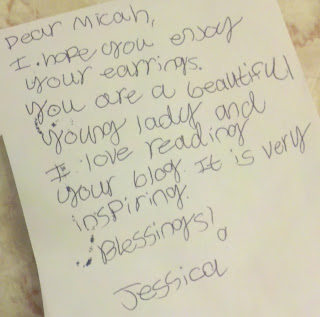 Dear Micah,
I hope you enjoy
your earrings.
You are a beautiful
young lady and
I love reading
your blog. It is very
inspiring.
Blessings!
Jessica